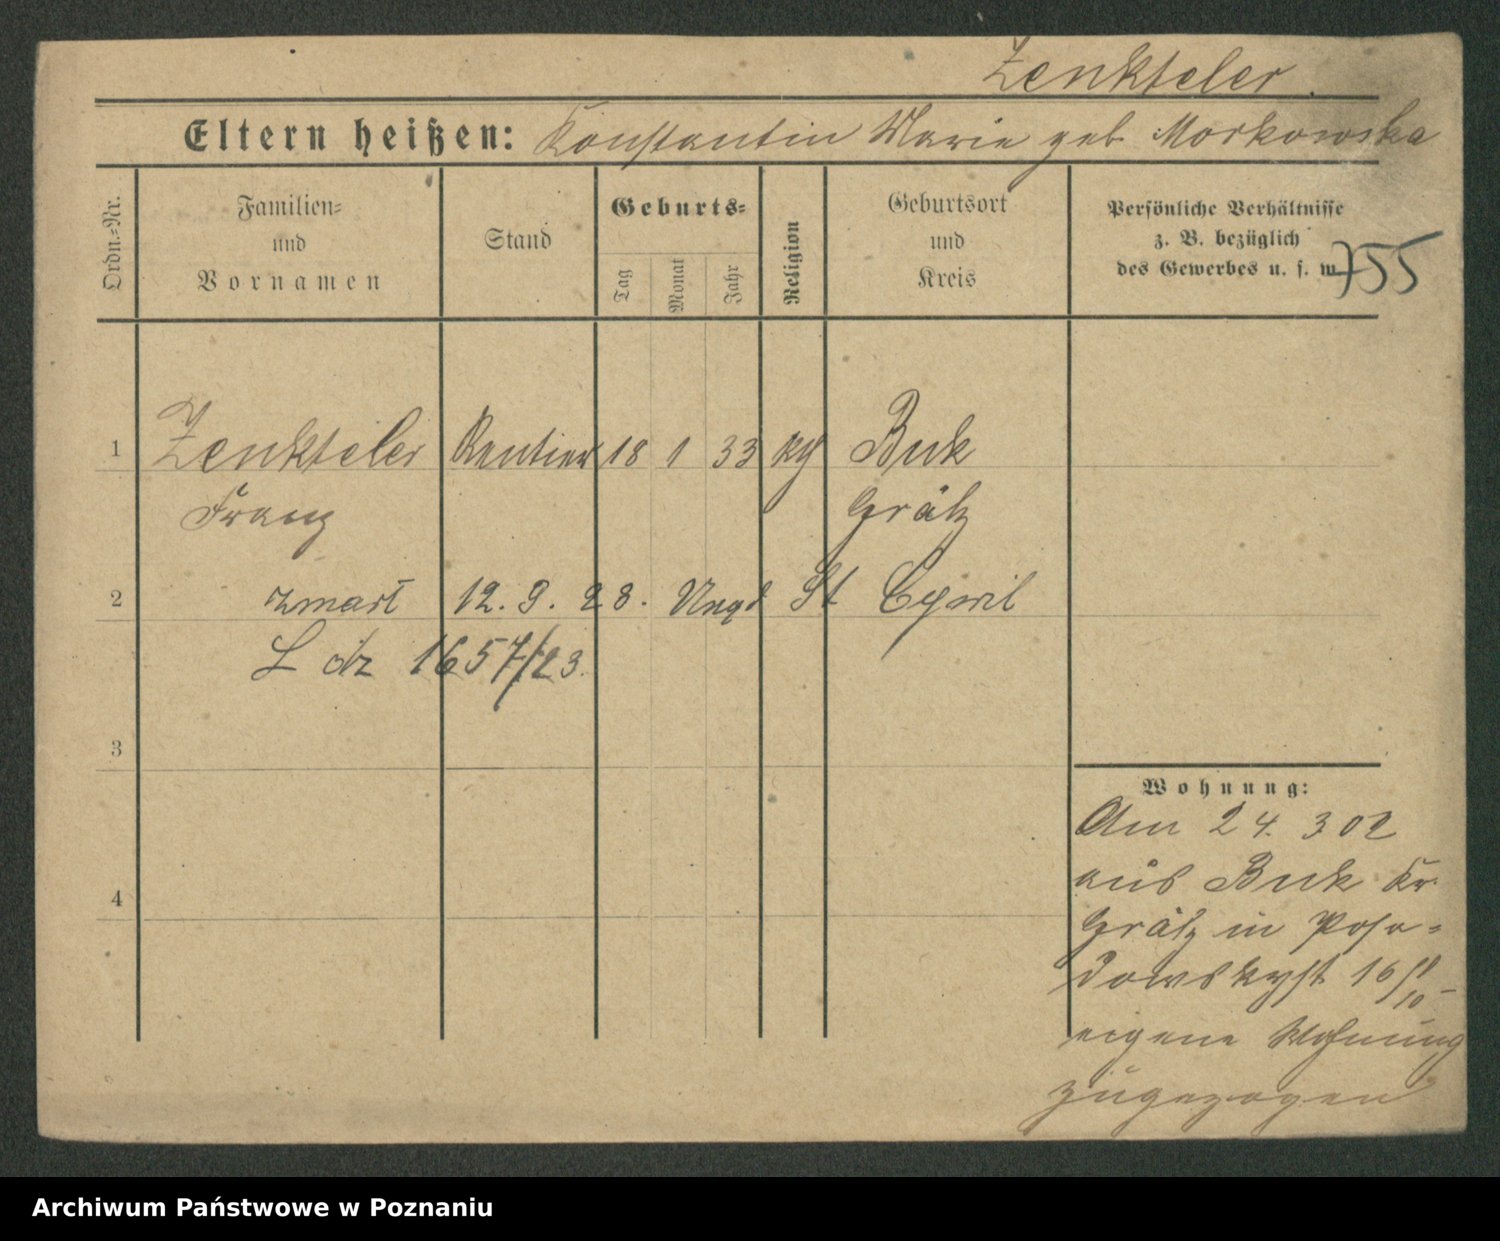 Zenkteler.
Eltern heißen: Konstantin Marie geb Morkowska
Ordn.=Nr.
Familien=
und
Vornamen
Stand
Geburts=
Tag
Monat
Jahr
Religion
Geburtsort
und
Kreis
Persönliche Verhältnisse
z. B. bezüglich
des Gewerbes u. s. w.
755
1 Zenkteler Rentier 18 1 33 kth Buk
Franz Grätz
2 zmarł 12. 9. 28. Urzęd St Cywil
L dz 1657/23.
3
4
Wohnung:
Am 24. 3 02
aus Buk Kr.
Grätz in Posa=
dowskyst. 16
eigene Wohnung
zugezogen
Archiwum Państwowe w Poznaniu